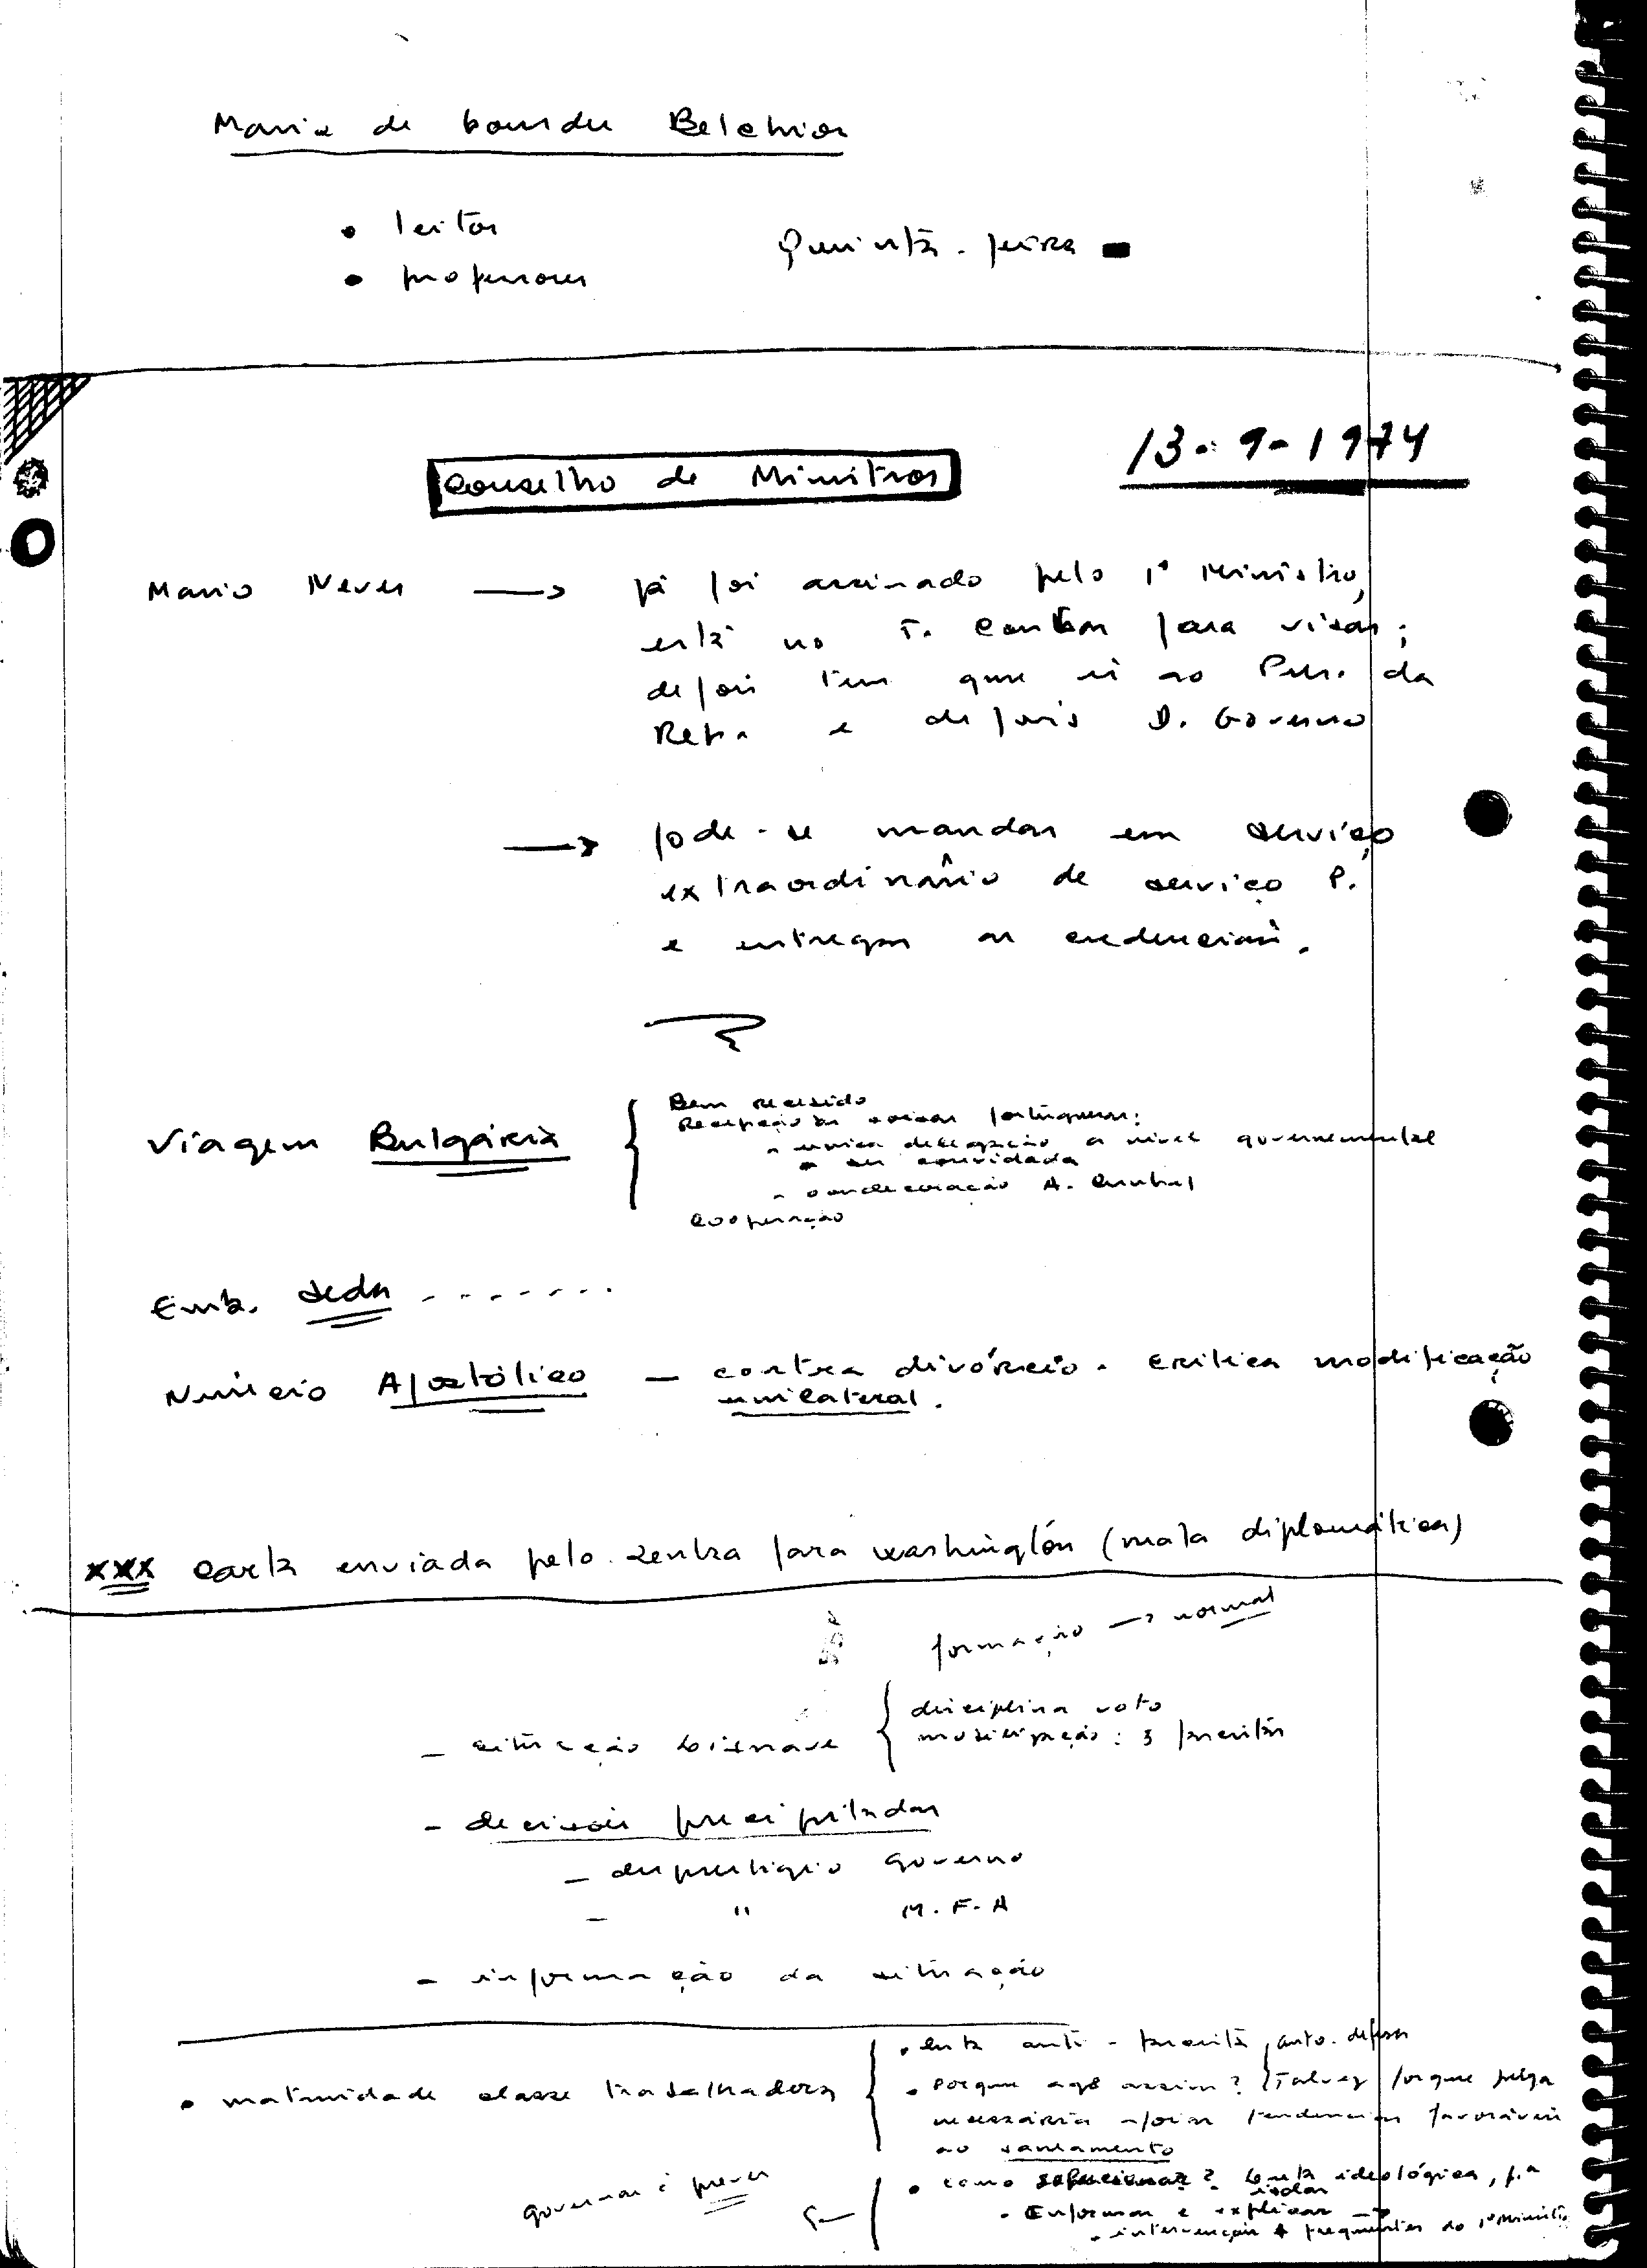 Maria de Lourdes Belchior
• leitor
Quinta-feira
• professores
13-9-1974
Conselho de Ministros
Mario Neves → já foi assinado pelo 1º Ministro,
está no T. Contas para visar;
depois tem que ir ao Pres. da
Repa e depois D. Governo
→ pode-se mandar em serviço
extraordinário de serviço P.
e entregar as credenciais.
Bem recebido
Recepção às coisas portuguesas:
Viagem Bulgária
- unica delegação a nivel governamental
- ser convidada
- condecoração A. Cunhal
Cooperação
Emb. Seda .......
Nuncio Apostólico — contra divórcio. Critica modificação
unilateral.
xxx Carta enviada pelo Lentra para Washington (mala diplomática)
formação → normal
disciplina voto
- situação Lisnave
mobilização: 3 paneitas
- decisões precipitadas
- desprestigio governo
- " M.F.A
- informação da situação
• luta anti-, auto-defesa
• maturidade classe trabalhadora
• Porque age assim? Talvez porque julga
necessária apoiar tendencias favoráveis
ao saneamento
governar é prever
• como solucionar? Luta ideológica, p.a
isolar
- Informar e explicar →
- intervenções + frequentes do 1º ministro